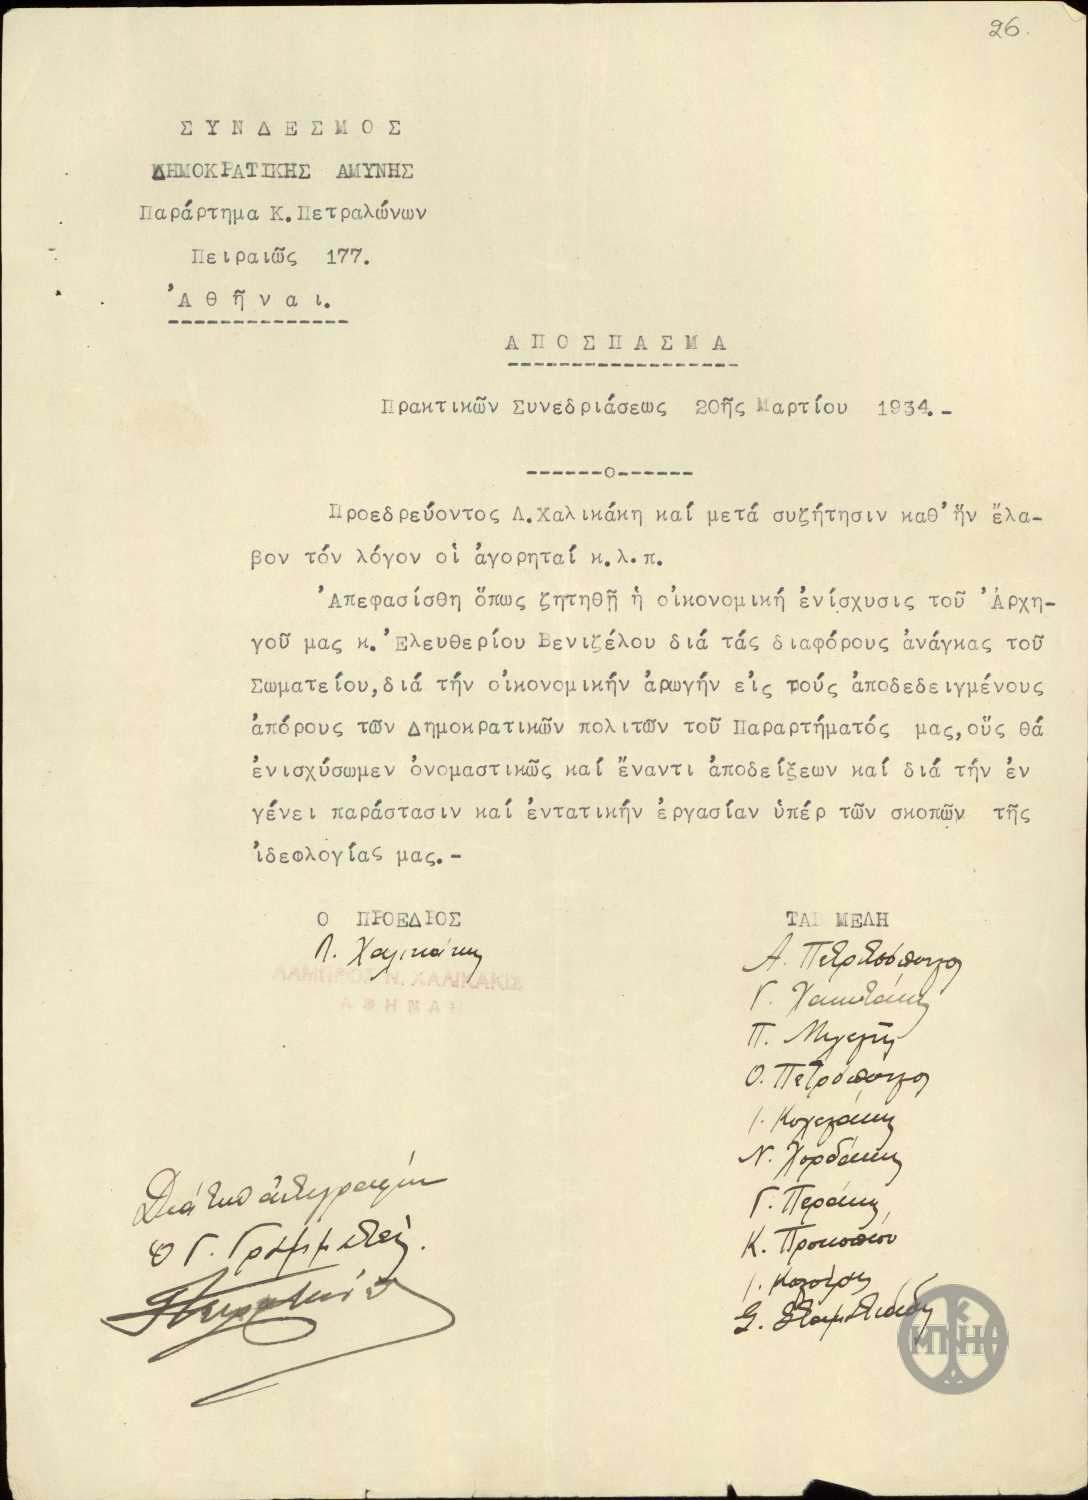 26.
ΣΥΝΔΕΣΜΟΣ
ΔΗΜΟΚΡΑΤΙΚΗΣ ΑΜΥΝΗΣ
Παράρτημα Κ.Πετραλώνων
Πειραιῶς 177.
Ἀθῆναι.
ΑΠΟΣΠΑΣΜΑ
Πρακτικῶν Συνεδριάσεως 20ῆς Μαρτίου 1934.-
------ο------
Προεδρεύοντος Λ.Χαλικάκη καί μετά συζήτησιν καθ' ἥν ἔλα-
βον τόν λόγον οἱ ἀγορηταί κ.λ.π.
Ἀπεφασίσθη ὅπως ζητηθῇ ἡ οἰκονομική ἐνίσχυσις τοῦ Ἀρχη-
γοῦ μας κ. Ἐλευθερίου Βενιζέλου διά τάς διαφόρους ἀνάγκας τοῦ
Σωματείου,διά τήν οἰκονομικήν ἀρωγήν εἰς τούς ἀποδεδειγμένους
ἀπόρους τῶν Δημοκρατικῶν πολιτῶν τοῦ Παραρτήματός μας,οὕς θά
ἐνισχύσωμεν ὀνομαστικῶς καί ἔναντι ἀποδείξεων καί διά τήν ἐν
γένει παράστασιν καί ἐντατικήν ἐργασίαν ὑπέρ τῶν σκοπῶν τῆς
ἰδεφλογίας μας.-
Ο ΠΡΟΕΔΡΟΣ
Λ. Χαλικάκης
ΛΑΜΠΡΟΣ Ν. ΧΑΛΙΚΑΚΙΣ
ΑΘΗΝΑΙ
ΤΑΙ ΜΕΛΗ
Α. Πετρτσόπουλος
Γ.
Π.
Ο. Πετρόπουλος
Ι.
Ν. Χορδάκης
Γ. Περάκης
Κ. Προκοπίου
Ι.
Διά τήν ἀντιγραφήν
Ὁ Γ. Γραμματεύς.
ΜΠΝΗ